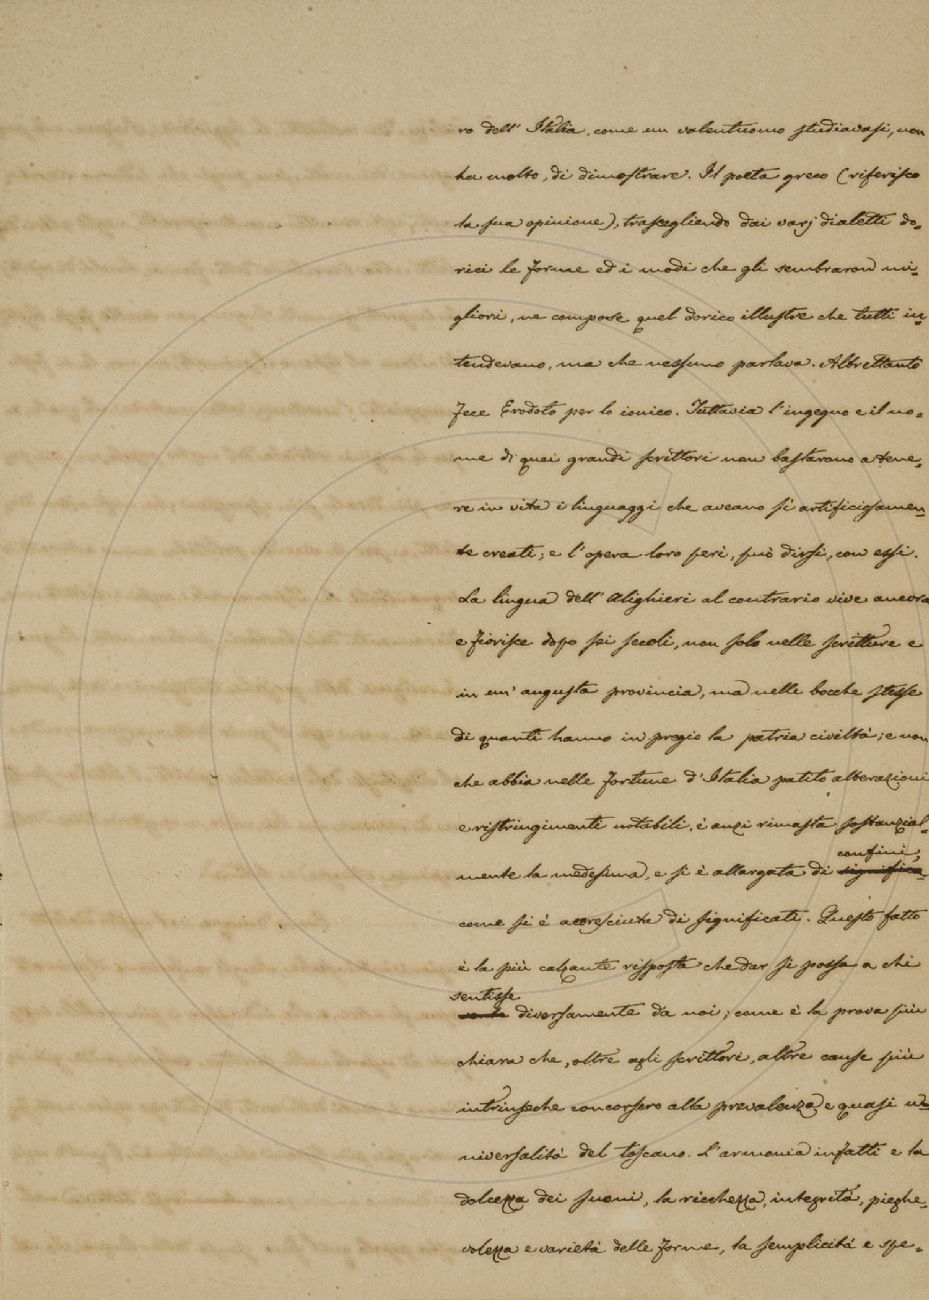 ro dell' Italia, come un valentuomo studiavasi, non
ha molto, di dimostrare. Il poeta greco (riferisco
la sua opinione), trascegliendo dai varj dialetti do=
rici le forme ed i modi che gli sembraron mi=
gliori, ne compose quel dorico illustre che tutti in=
tendevano, ma che nessuno parlava. Altrettanto
fece Erodoto per lo ionico. Tuttavia l'ingegno e il no=
me di quei grandi scrittori non bastarono a tene=
re in vita i linguaggi che aveano sì artificiosamen=
te creati; e l'opera loro perì, può dirsi, con essi.
La lingua dell' Alighieri al contrario vive ancora
e fiorisce dopo sei secoli, non solo nelle scritture e
in un' angusta provincia, ma nelle bocche stesse
di quanti hanno in pregio la patria civiltà; e non
che abbia nelle fortune d'Italia patito alterazioni
e ristringimenti notabili, è anzi rimasta sostanzial=
confini,
mente la medesima, e si è allargata di significa=
come si è accresciuta di significati. Questo fatto
è la più calzante risposta che dar si possa a chi
sentisse
diversamente da noi; come è la prova più
chiara che, oltre agli scrittori, altre cause più
intrinseche concorsero alla prevalenza e quasi u=
niversalità del toscano. L'armonia infatti e la
dolcezza dei suoni, la ricchezza, integrità, pieghe=
volezza e varietà delle forme, la semplicità e spe=